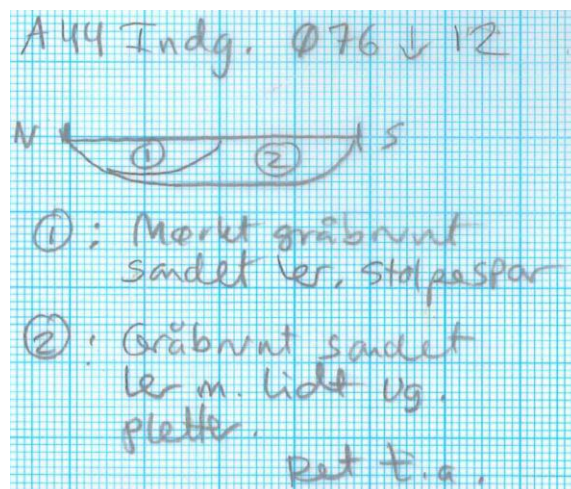 A44 Indg. Ø76 ↓ 12
N S
① ②
①: Mørkt gråbrunt
sandet ler. Stolpespor
②: Gråbrunt sandet
ler m. lidt ug.
pletter.
Ret t.a.